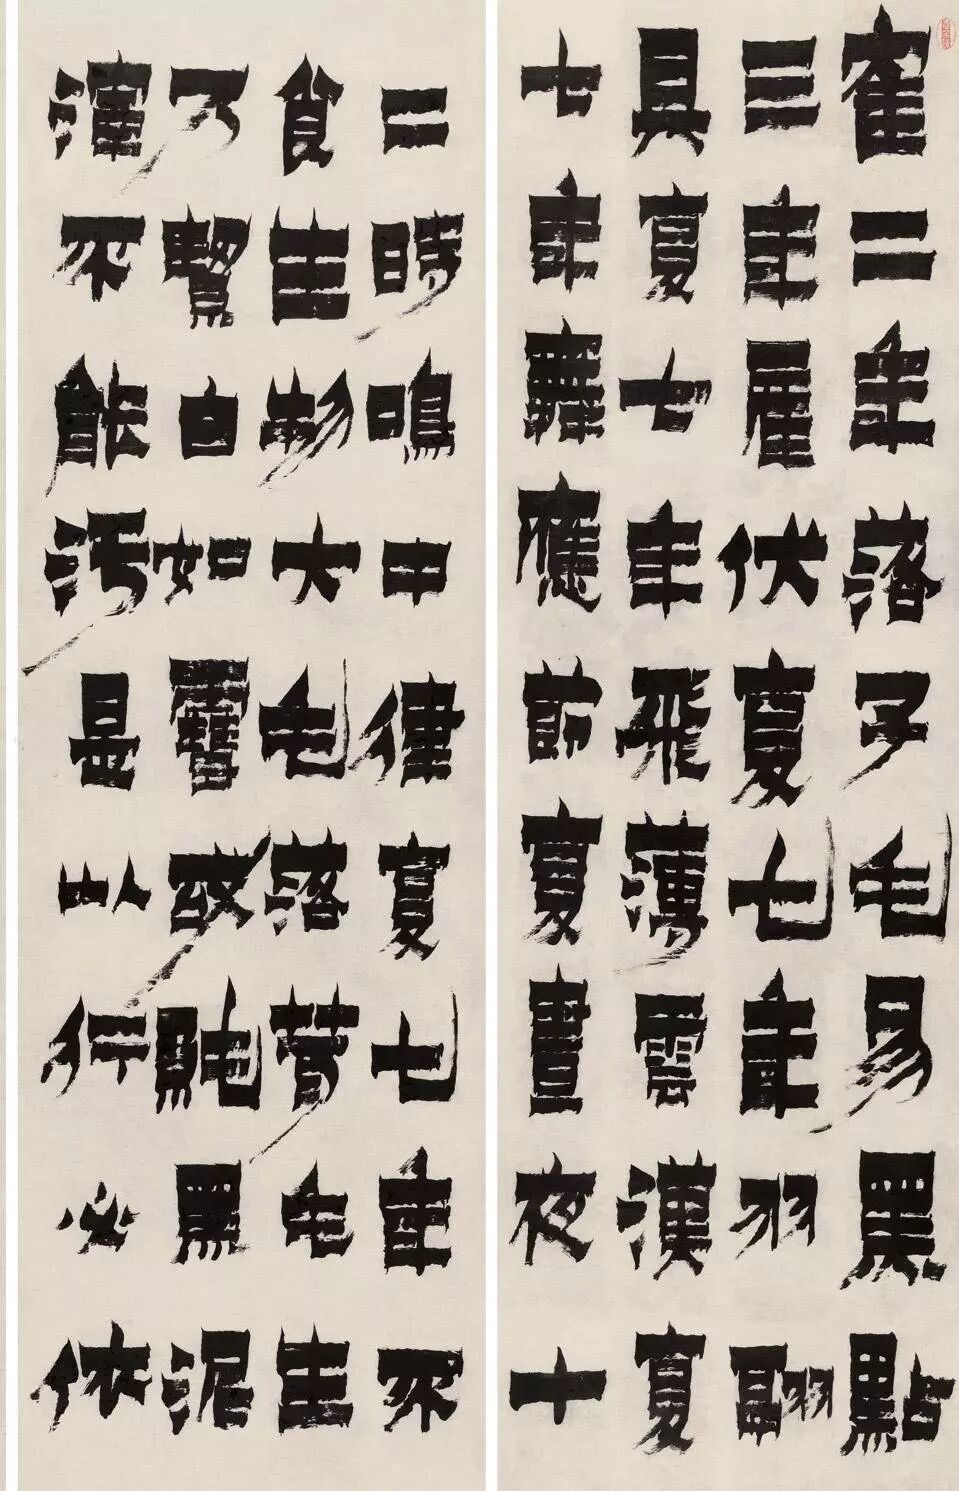 隺二年落子毛易黑點
三年雇伏复七年羽翮
具复七年飛薄雲漢复
七年舞應莭复晝夜十
二時鳴中律复七年不
食生物大毛落茸毛生
乃白如雪或黗黑泥
滓不能污是以行必依